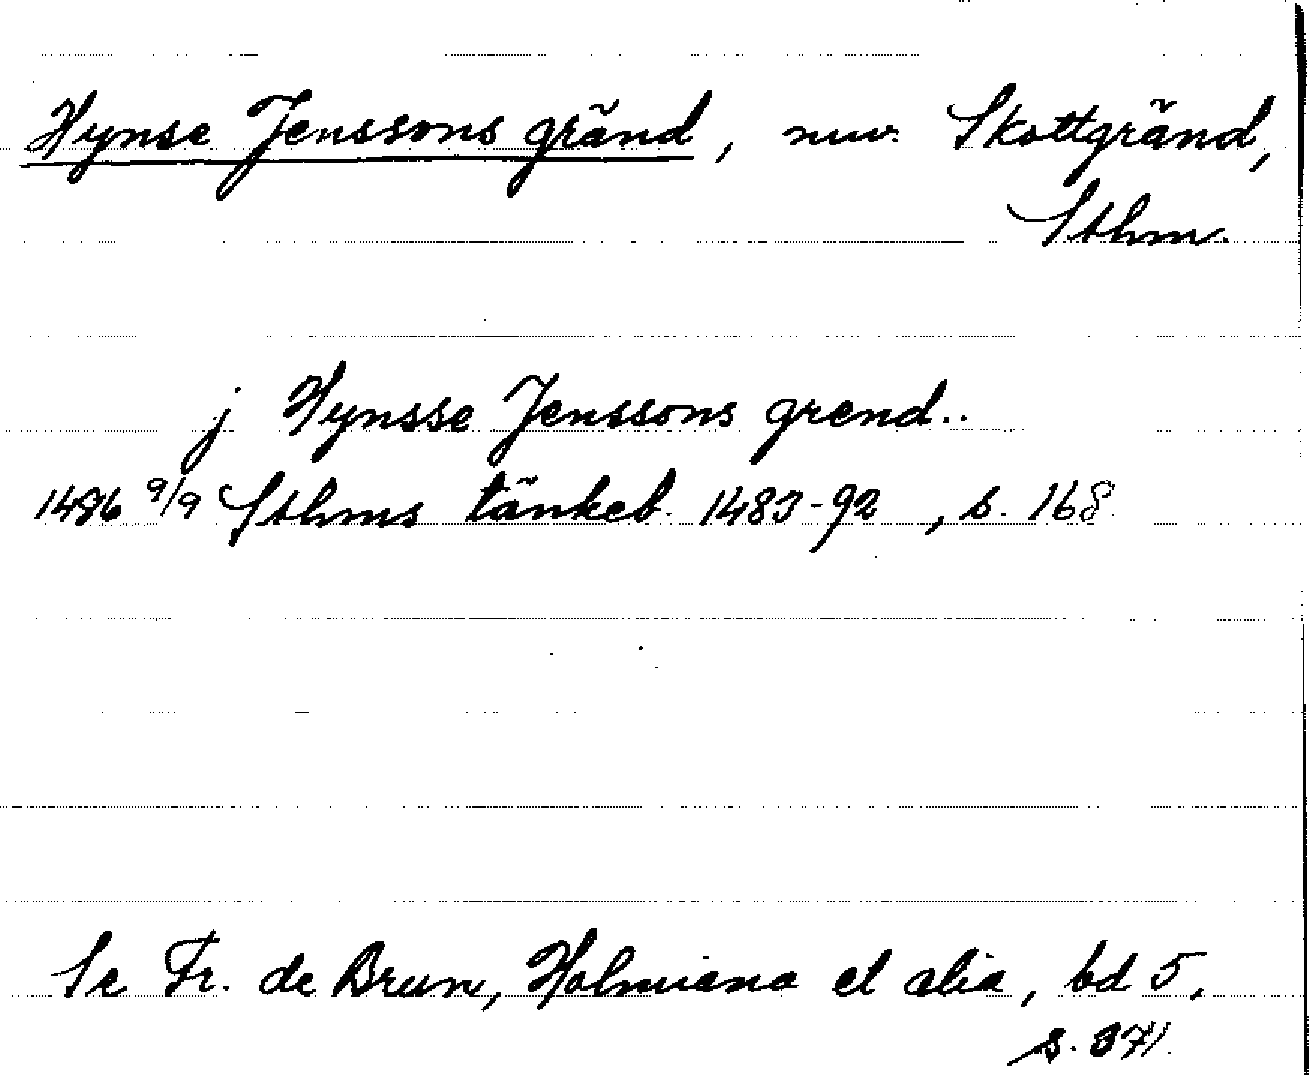 Hynse Jenssons gränd, nuv. Skottgränd,
Sthm.
j Hynsse Jenssons grend..
1486 9/9 Sthms tänkeb. 1483-92, s. 168
Se Fr. de Brun, Holmiana et alia, bd 5,
s. 371.